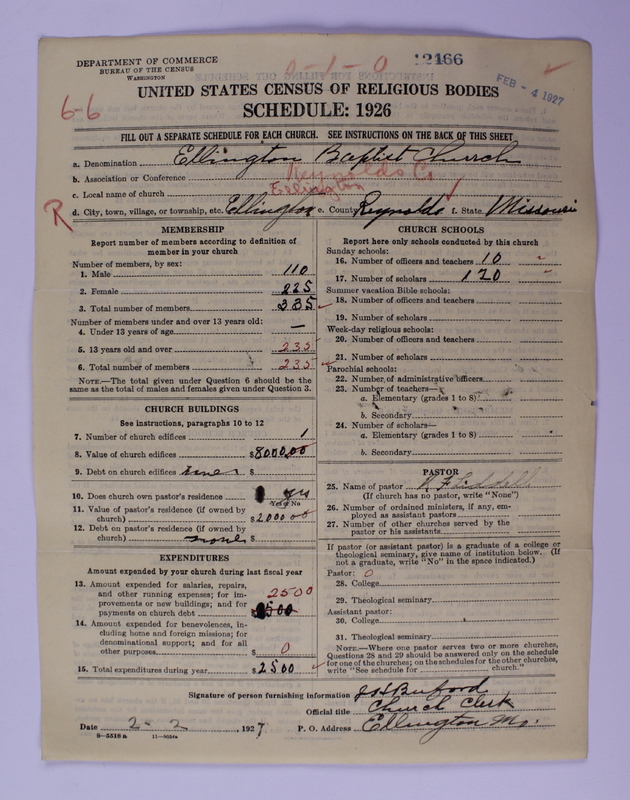 DEPARTMENT OF COMMERCE
BUREAU OF THE CENSUS
WASHINGTON
0-1-0
12166
FEB - 4 1927
6-6
UNITED STATES CENSUS OF RELIGIOUS BODIES
SCHEDULE: 1926
FILL OUT A SEPARATE SCHEDULE FOR EACH CHURCH. SEE INSTRUCTIONS ON THE BACK OF THIS SHEET
a. Denomination Ellington Baptist Church
b. Association or Conference Reynolds Co
c. Local name of church Ellington
R
d. City, town, village, or township, etc. Ellington e. County Reynolds f. State Missouri
MEMBERSHIP
Report number of members according to definition of
member in your church
Number of members, by sex:
1. Male 110
2. Female 225
3. Total number of members 335
Number of members under and over 13 years old:
4. Under 13 years of age —
5. 13 years old and over 235
6. Total number of members 235
NOTE.—The total given under Question 6 should be the
same as the total of males and females given under Question 3.
CHURCH BUILDINGS
See instructions, paragraphs 10 to 12
7. Number of church edifices 1
8. Value of church edifices $8000.00
9. Debt on church edifices none $
10. Does church own pastor's residence yes
Yes or No
11. Value of pastor's residence (if owned by
church) $2000 00
12. Debt on pastor's residence (if owned by
church) none $
EXPENDITURES
Amount expended by your church during last fiscal year
13. Amount expended for salaries, repairs,
and other running expenses; for im-
provements or new buildings; and for
payments on church debt 2500
14. Amount expended for benevolences, in-
cluding home and foreign missions; for
denominational support; and for all
other purposes $ 0
15. Total expenditures during year $2500
CHURCH SCHOOLS
Report here only schools conducted by this church
Sunday schools:
16. Number of officers and teachers 10
17. Number of scholars 120
Summer vacation Bible schools:
18. Number of officers and teachers
19. Number of scholars
Week-day religious schools:
20. Number of officers and teachers
21. Number of scholars
Parochial schools:
22. Number of administrative officers
23. Number of teachers—
a. Elementary (grades 1 to 8)
b. Secondary
24. Number of scholars—
a. Elementary (grades 1 to 8)
b. Secondary
PASTOR
25. Name of pastor
(If church has no pastor, write "None")
26. Number of ordained ministers, if any, em-
ployed as assistant pastors
27. Number of other churches served by the
pastor or his assistants
If pastor (or assistant pastor) is a graduate of a college or
theological seminary, give name of institution below. (If
not a graduate, write "No" in the space indicated.)
Pastor: 0
28. College
29. Theological seminary
Assistant pastor:
30. College
31. Theological seminary
NOTE.—Where one pastor serves two or more churches,
Questions 28 and 29 should be answered only on the schedule
for one of the churches; on the schedules for the other churches,
write "See schedule for church."
Signature of person furnishing information Buford
Official title Church Clerk
Date 2-2, 1927 P. O. Address Ellington Mo.
8-5518a 11-9054a